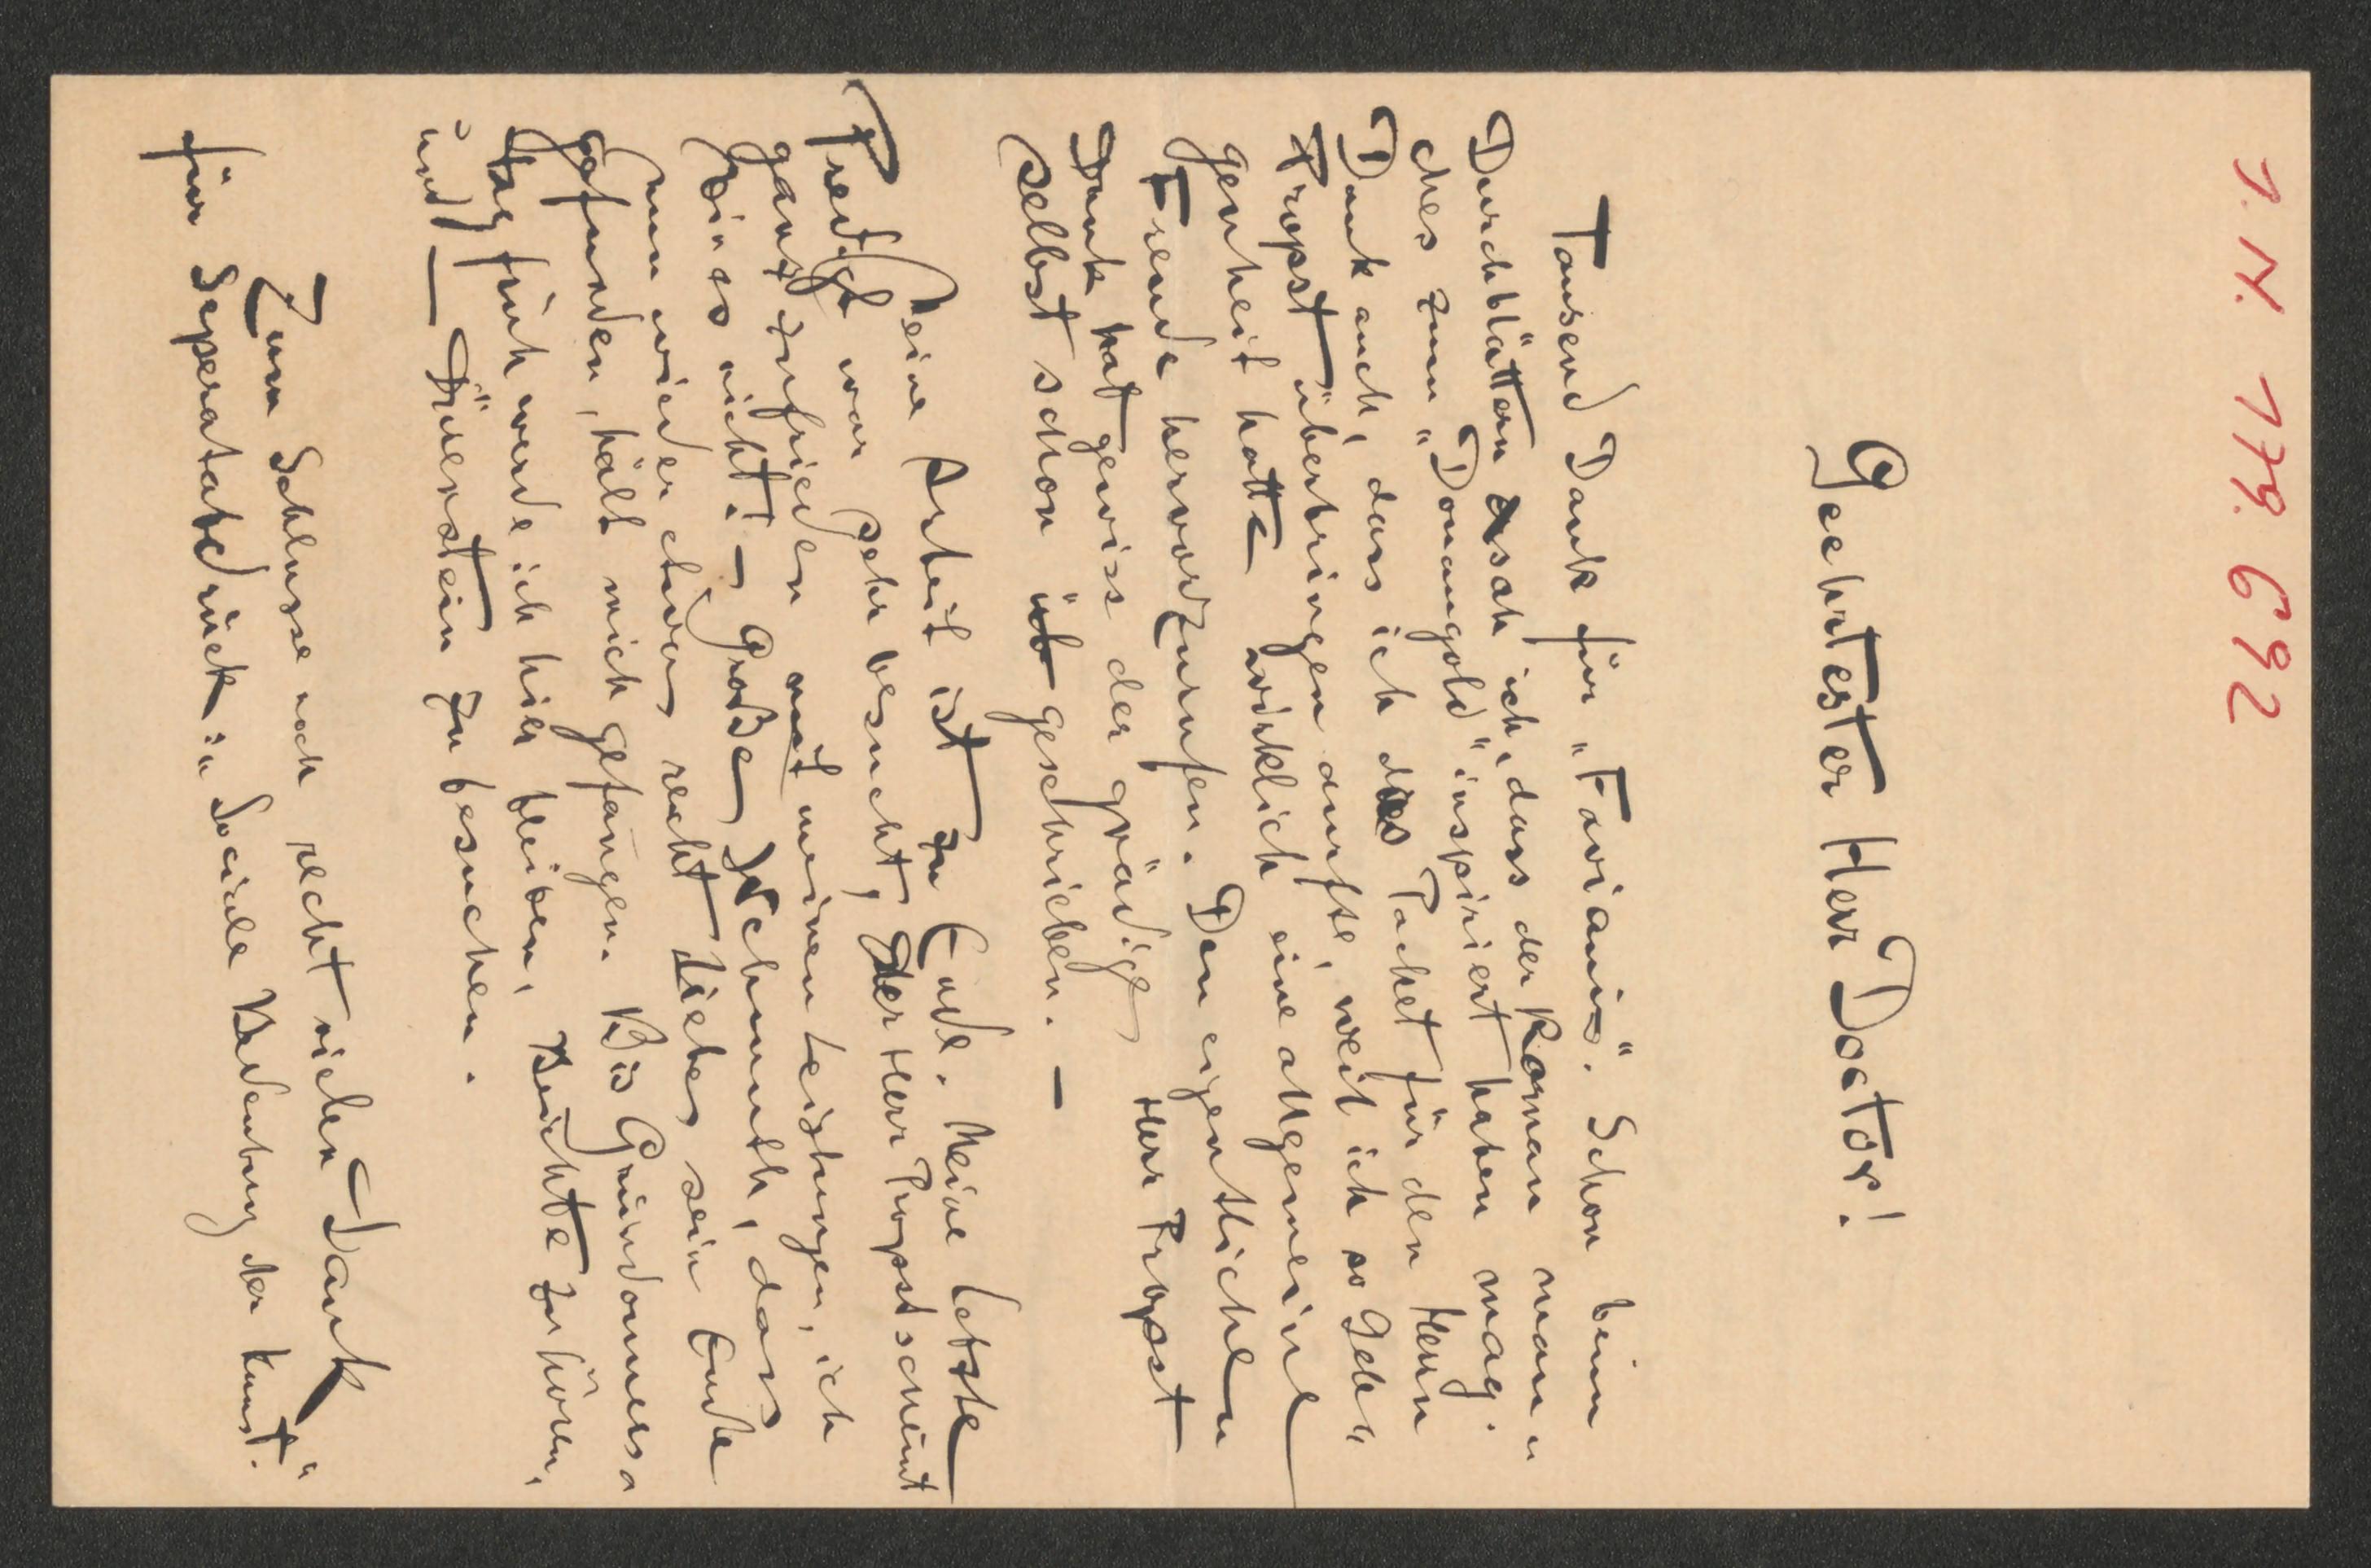 J. N. 179. 692
Geehrtester Herr Doctor!
Tausend Dank für „Favianis“. Schon beim
Durchblättern sah ich, dass der Roman man„
ches zum „Donaugold“ inspiriert haben mag.
Dank auch, dass ich das Packet für den Herrn
Propst überbringen durfte, weil ich so Gele„
genheit hatte wirklich eine allgemeine
Freude hervorzurufen. Den eigentlichen
Dank hat gewiss der gnädige Herr Propst
selbst schon geschrieben. —
Meine Arbeit ist zu Ende. Meine letzte
Predigt war sehr besucht, der Herr Propst scheint
ganz zufrieden mit meinen Leistungen, ich
bin es nicht. – Große Wehmuth, dass
nun wieder etwas recht Liebes sein Ende
gefunden, hält mich gefangen. Bis Gründonners„
tag früh werde ich hier bleiben, Beichte zu hören,
und — Dürenstein zu besuchen.
Zum Schlusse noch recht vielen Dank
für Seperatabdruck: „Sociale Bedeutung der Kunst.“